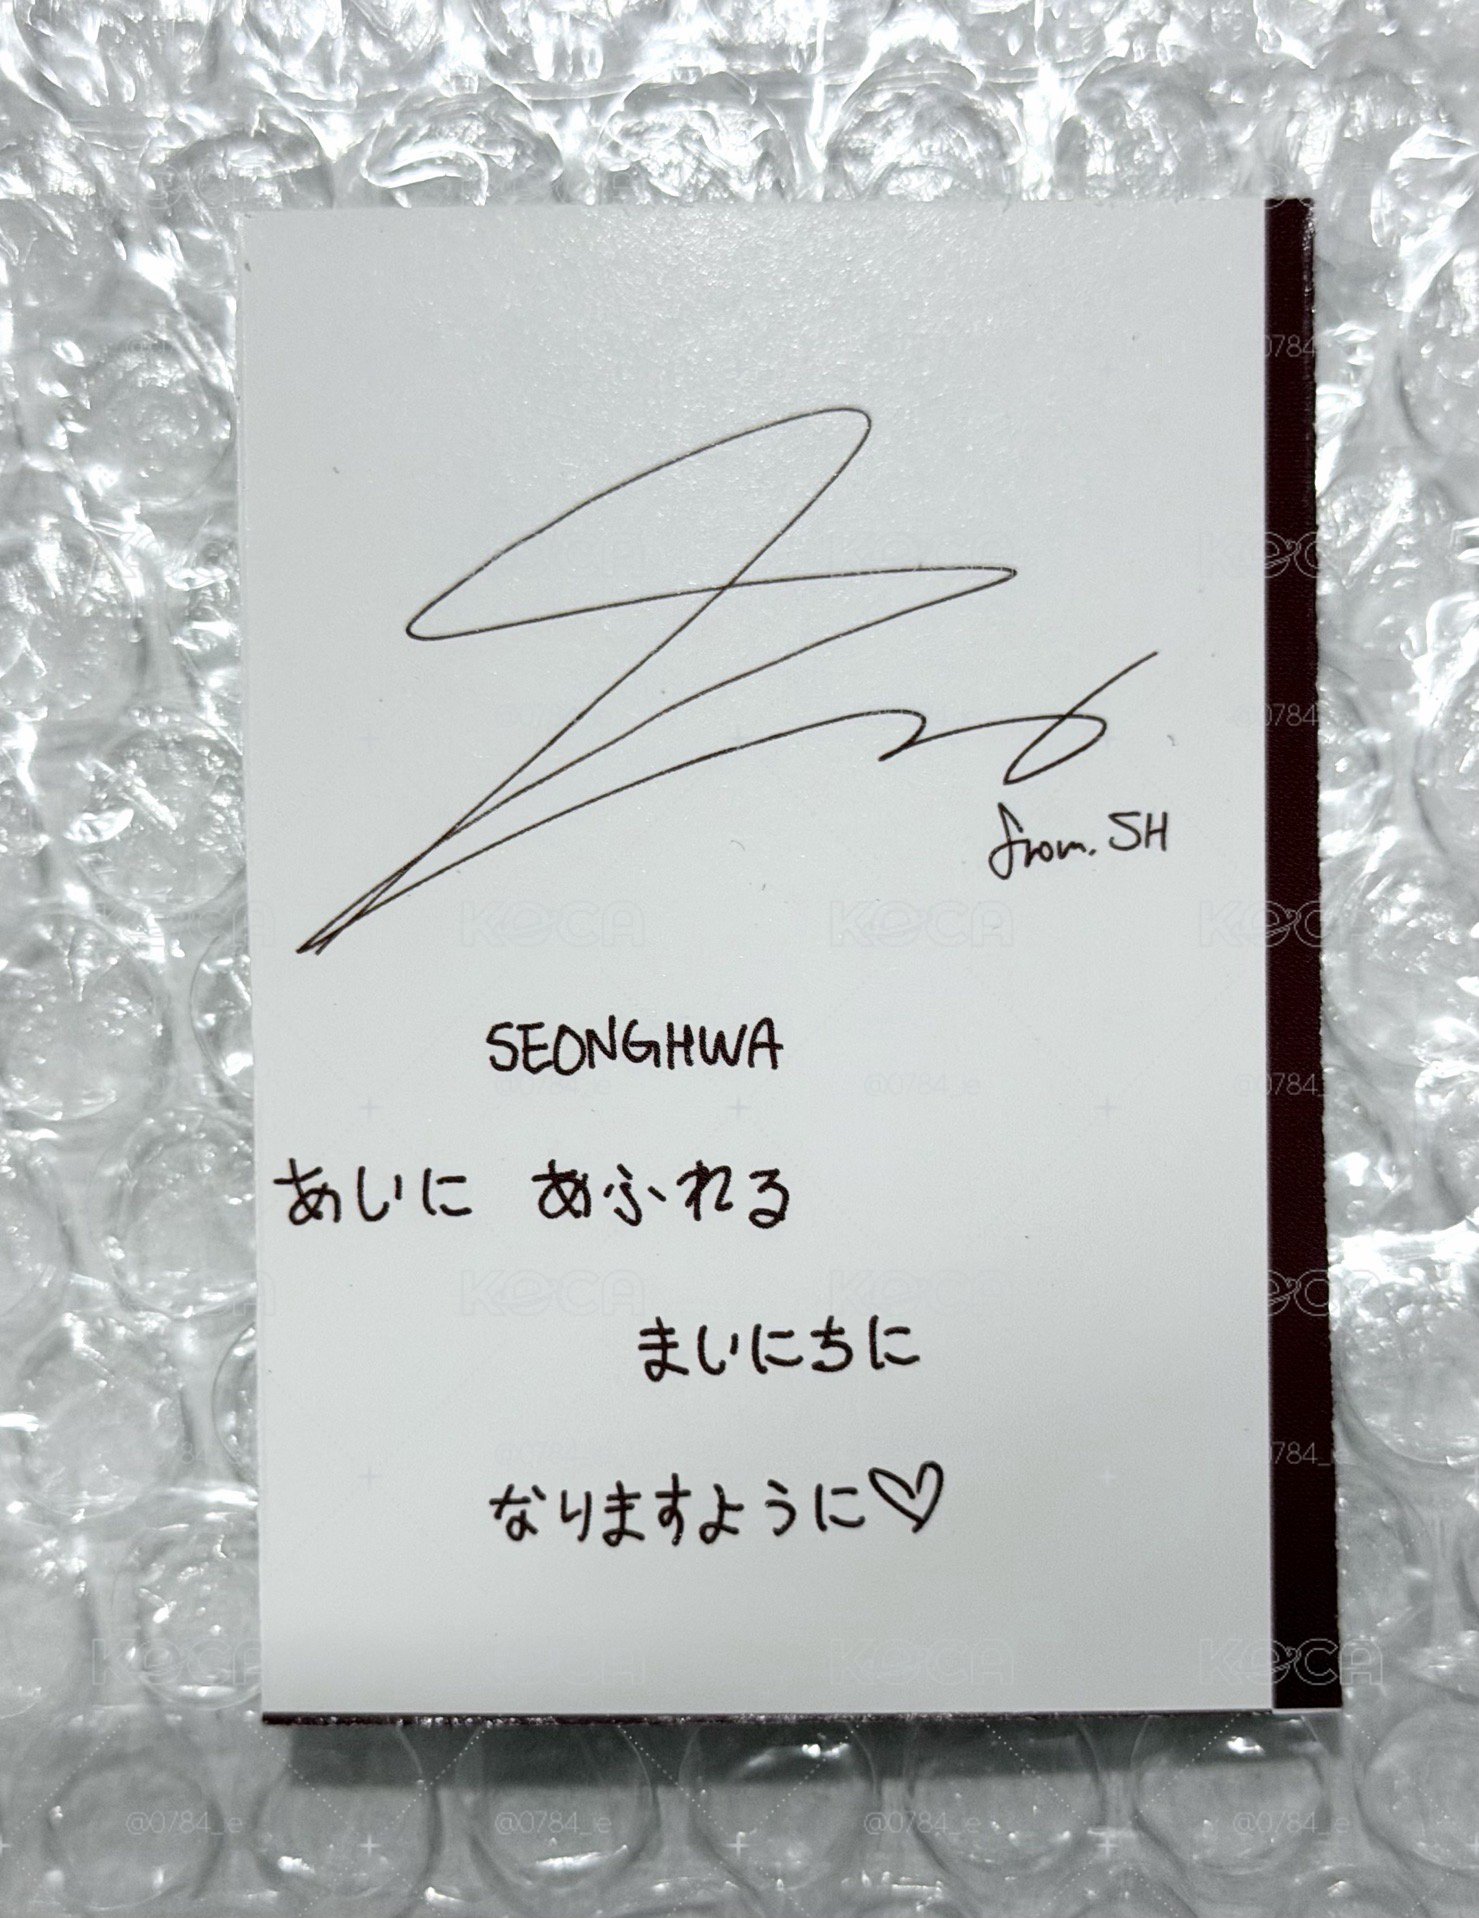 from. SH
SEONGHWA
あいに あふれる
まいにちに
なりますように♡
KeCA
@0784_e